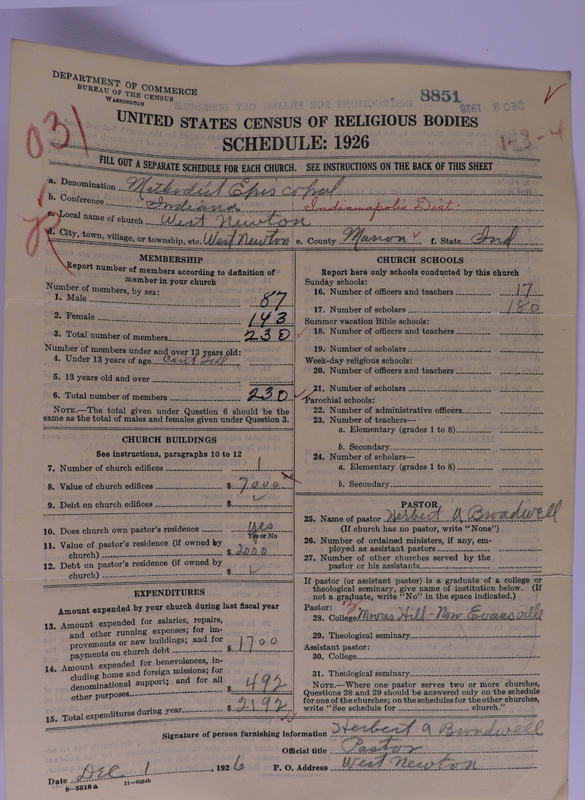 DEPARTMENT OF COMMERCE
BUREAU OF THE CENSUS
WASHINGTON
8851
DEC 3 1926
UNITED STATES CENSUS OF RELIGIOUS BODIES
SCHEDULE: 1926
031
1-3-4
FILL OUT A SEPARATE SCHEDULE FOR EACH CHURCH. SEE INSTRUCTIONS ON THE BACK OF THIS SHEET
a. Denomination Methodist Episcopal
b. Conference Indiana Indianapolis Dist.
c. Local name of church West Newton
d. City, town, village, or township, etc. West Newton e. County Marion f. State Ind
MEMBERSHIP
Report number of members according to definition of
member in your church
Number of members, by sex:
1. Male 87
2. Female 143
3. Total number of members 230
Number of members under and over 13 years old:
4. Under 13 years of age Can't Tell
5. 13 years old and over
6. Total number of members 230
NOTE.—The total given under Question 6 should be the
same as the total of males and females given under Question 3.
CHURCH BUILDINGS
See instructions, paragraphs 10 to 12
7. Number of church edifices 1
8. Value of church edifices $7000
9. Debt on church edifices $
10. Does church own pastor's residence yes
Yes or No
11. Value of pastor's residence (if owned by
church) $2000
12. Debt on pastor's residence (if owned by
church) $
EXPENDITURES
Amount expended by your church during last fiscal year
13. Amount expended for salaries, repairs,
and other running expenses; for im-
provements or new buildings; and for
payments on church debt $1700
14. Amount expended for benevolences, in-
cluding home and foreign missions; for
denominational support; and for all
other purposes $492
15. Total expenditures during year $2192
CHURCH SCHOOLS
Report here only schools conducted by this church
Sunday schools:
16. Number of officers and teachers 17
17. Number of scholars 180
Summer vacation Bible schools:
18. Number of officers and teachers
19. Number of scholars
Week-day religious schools:
20. Number of officers and teachers
21. Number of scholars
Parochial schools:
22. Number of administrative officers
23. Number of teachers—
a. Elementary (grades 1 to 8)
b. Secondary
24. Number of scholars—
a. Elementary (grades 1 to 8)
b. Secondary
PASTOR
25. Name of pastor Herbert A Broadwell
(If church has no pastor, write "None")
26. Number of ordained ministers, if any, em-
ployed as assistant pastors
27. Number of other churches served by the
pastor or his assistants
If pastor (or assistant pastor) is a graduate of a college or
theological seminary, give name of institution below. (If
not a graduate, write "No" in the space indicated.)
Pastor:
28. College Moores Hill - Now Evansville
29. Theological seminary
Assistant pastor:
30. College
31. Theological seminary
NOTE.—Where one pastor serves two or more churches,
Questions 28 and 29 should be answered only on the schedule
for one of the churches; on the schedules for the other churches,
write "See schedule for church."
Signature of person furnishing information Herbert A Broadwell
Official title Pastor
Date Dec 1, 1926 P. O. Address West Newton
6-5518 a 11-9554b